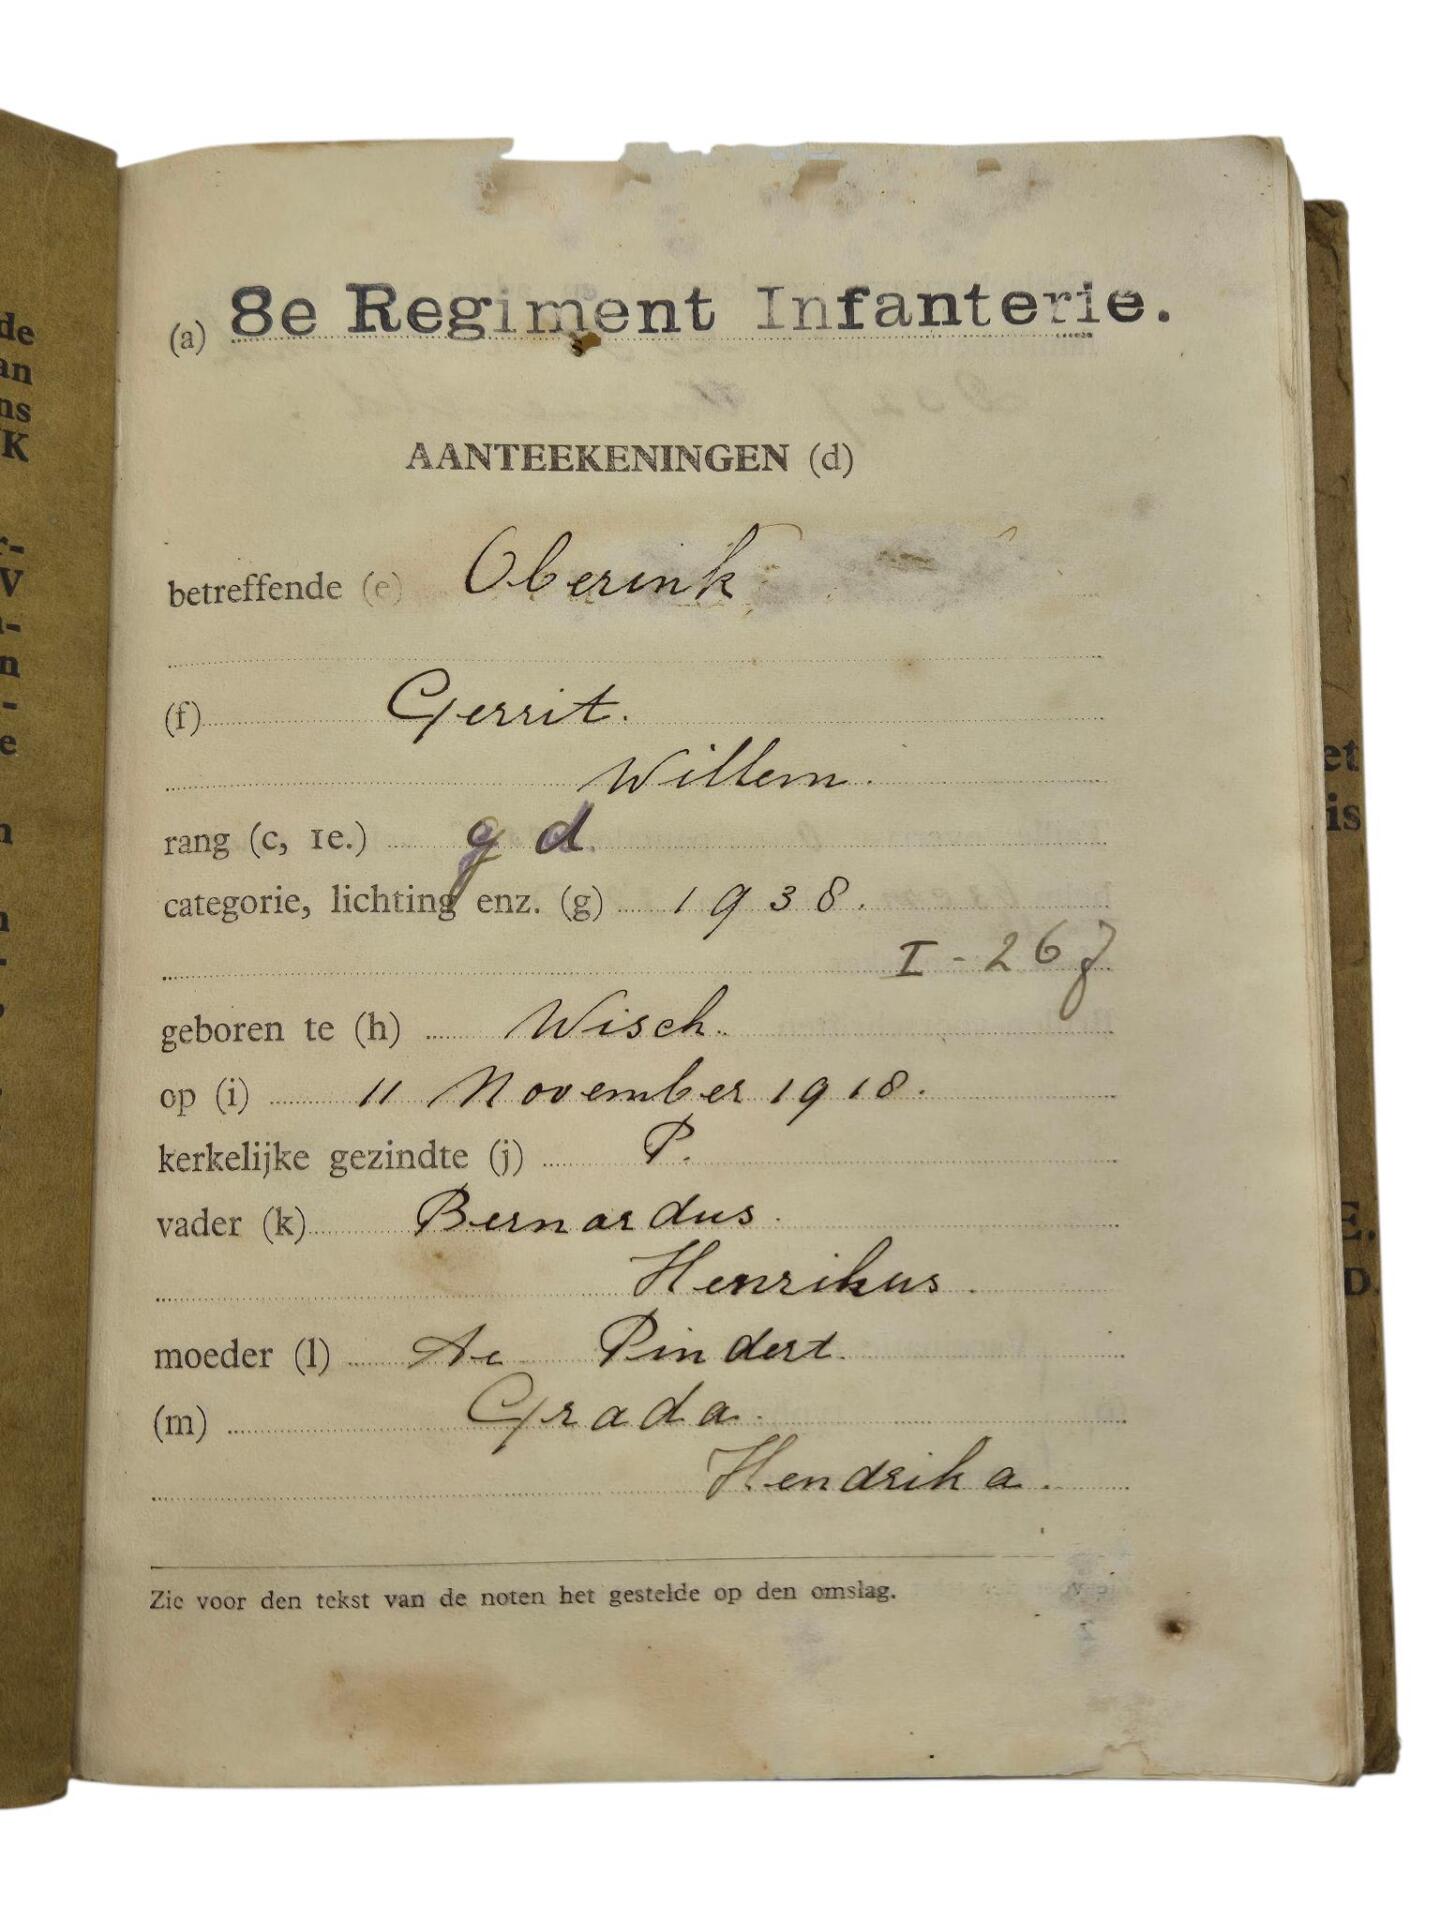 (a) 8e Regiment Infanterie.
AANTEEKENINGEN (d)
betreffende (e) Oberink
(f) Gerrit.
Willem.
rang (c, 1e.) g d.
categorie, lichting enz. (g) 1938.
I - 267
geboren te (h) Wisch.
op (i) 11 November 1918.
kerkelijke gezindte (j) P.
vader (k) Bernardus.
Henrikus.
moeder (l) Pindert.
(m) Grada.
Hendrika.
Zie voor den tekst van de noten het gestelde op den omslag.
de
an
ns
K
r-
V
n
-
e
n
et
is
E.
D.